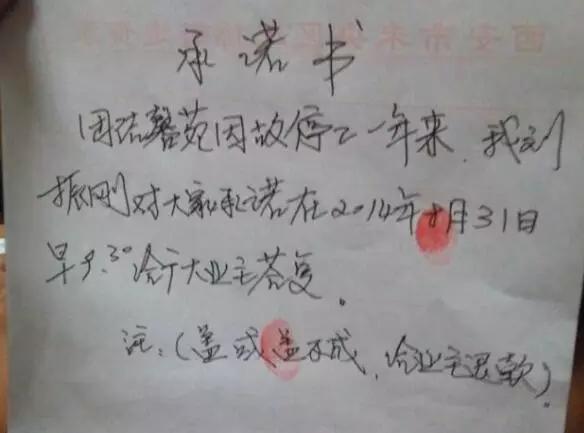 西安市未央区
承诺书
团结馨苑因故停工一年来,我刘
振刚对大家承诺在2014年8月31日
早9.30给广大业主答复。
注:(盖或盖不成,给业主退款)。